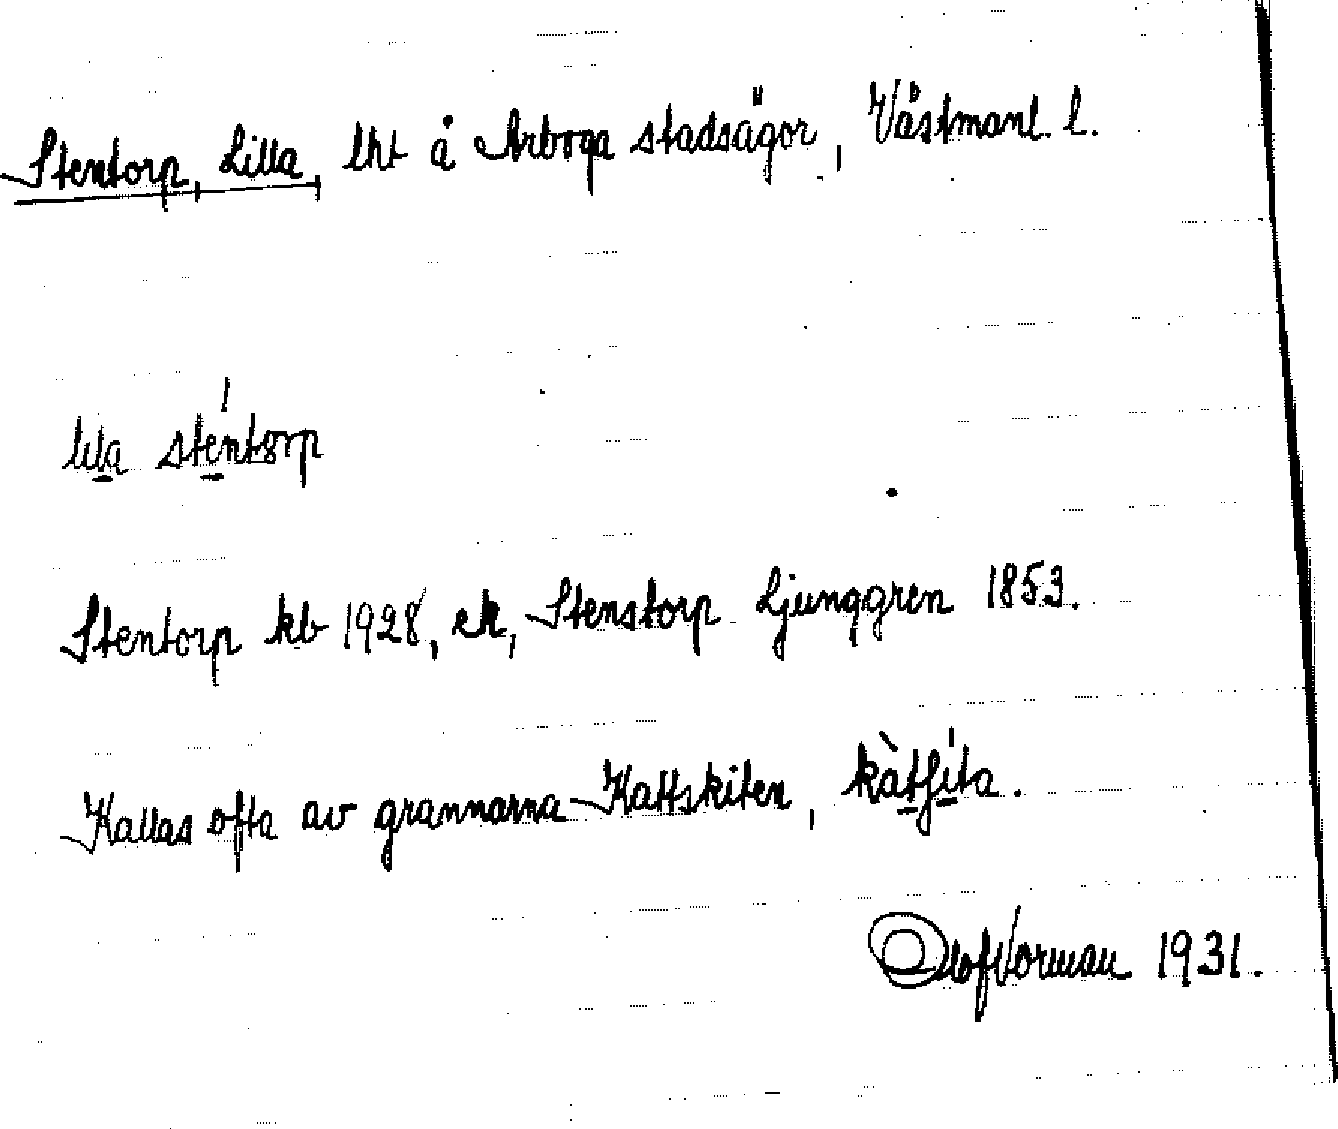 Stentorp, Lilla, lht å Arboga stadsägor, Västmanl. l.
lilla sténtorp
Stentorp kb 1928, ek, Stenstorp Ljunggren 1853.
Kallas ofta av grannarna Kattskiten, kàtʃíta.
Olof Vorman 1931.